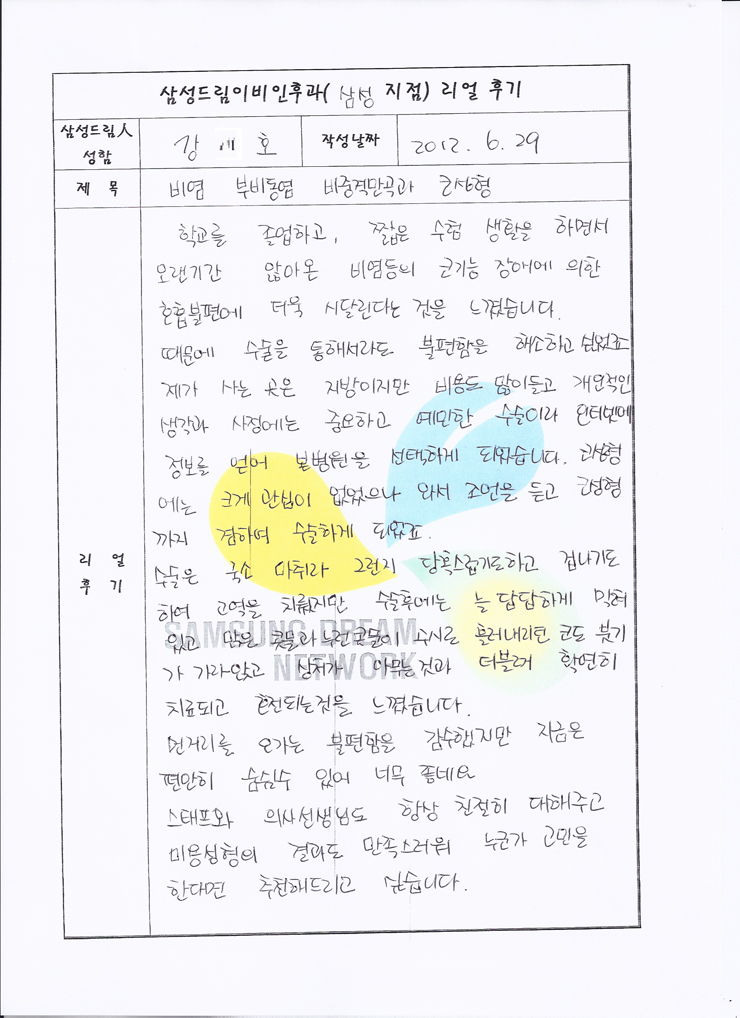 삼성드림이비인후과( 삼성 지점) 리얼 후기
삼성드림人
성함
강 호
작성날짜
2012. 6. 29
제 목
비염 부비동염 비중격만곡과 코성형
리 얼
후 기
학교를 졸업하고, 짧은 수험 생활을 하면서
오랜기간 앓아온 비염등의 코기능 장애에 의한
호흡불편에 더욱 시달린다는 것을 느꼈습니다.
때문에 수술을 통해서라도 불편함은 해소하고 싶었죠
제가 사는 곳은 지방이지만 비용도 많이들고 개인적인
생각과 사정에는 중요하고 예민한 수술이라 인터넷에
정보를 얻어 본병원을 선택하게 되었습니다. 코성형
에는 크게 관심이 없었으나 와서 조언을 듣고 코성형
까지 겸하여 수술하게 되었죠.
수술은 국소 마취라 그런지 당혹스럽기도하고 겁나기도
하여 고역을 치뤘지만 수술후에는 늘 답답하게 막혀
있고 맑은 콧물과 누런콧물이 수시로 흘러내리던 코도 붓기
가 가라앉고 상처가 아무는것과 더불어 확연히
치료되고 호전되는것을 느꼈습니다.
먼거리를 오가는 불편함을 감수했지만 지금은
편안히 숨쉴수 있어 너무 좋네요
스태프와 의사선생님도 항상 친절히 대해주고
미용성형의 결과도 만족스러워 누군가 고민을
한다면 추천해드리고 싶습니다.
SAMSUNG DREAM
NETWORK